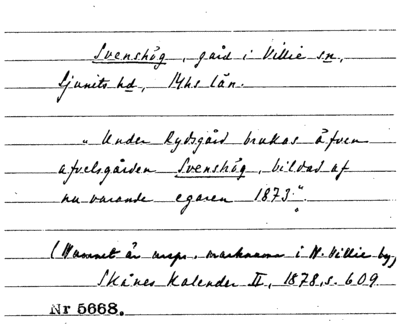 Svenshög, gård i Villie sn,
Ljunits hd, Mhs län.
"Under Rydsgård brukas äfven
afvelsgården Svenshög, bildad af
nuvarande egaren 1873".
(Namnet är urspr. marknamn i N. Villie by)
Skånes Kalender II, 1878, s. 609.
Nr 5668.